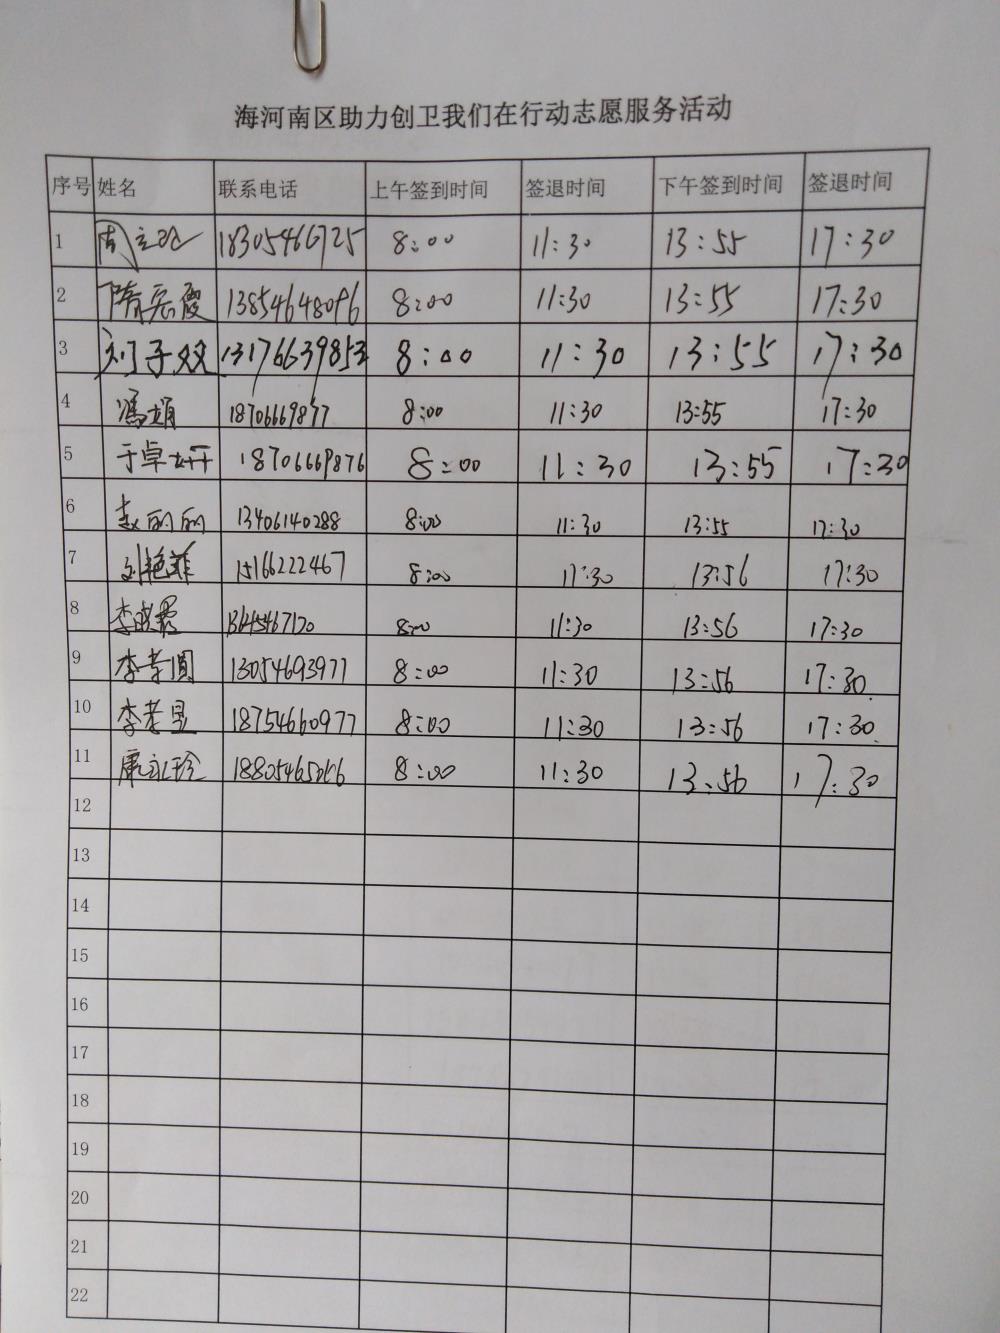 海河南区助力创卫我们在行动志愿服务活动
序号 姓名 联系电话 上午签到时间 签退时间 下午签到时间 签退时间
1 18305466725 8:00 11:30 13:55 17:30
2 隋宏霞 13854648096 8:00 11:30 13:55 17:30
3 刘子双 13176639853 8:00 11:30 13:55 17:30
4 冯娟 18706669877 8:00 11:30 13:55 17:30
5 于卓妍 18706669876 8:00 11:30 13:55 17:30
6 赵丽丽 13406140288 8:00 11:30 13:55 17:30
7 刘艳菲 15166222467 8:00 11:30 13:56 17:30
8 李晓霞 13645467120 8:00 11:30 13:56 17:30
9 李孝圆 13054693977 8:00 11:30 13:56 17:30
10 18754660977 8:00 11:30 13:56 17:30
11 康玉珍 8:00 11:30 13:56 17:30
12
13
14
15
16
17
18
19
20
21
22